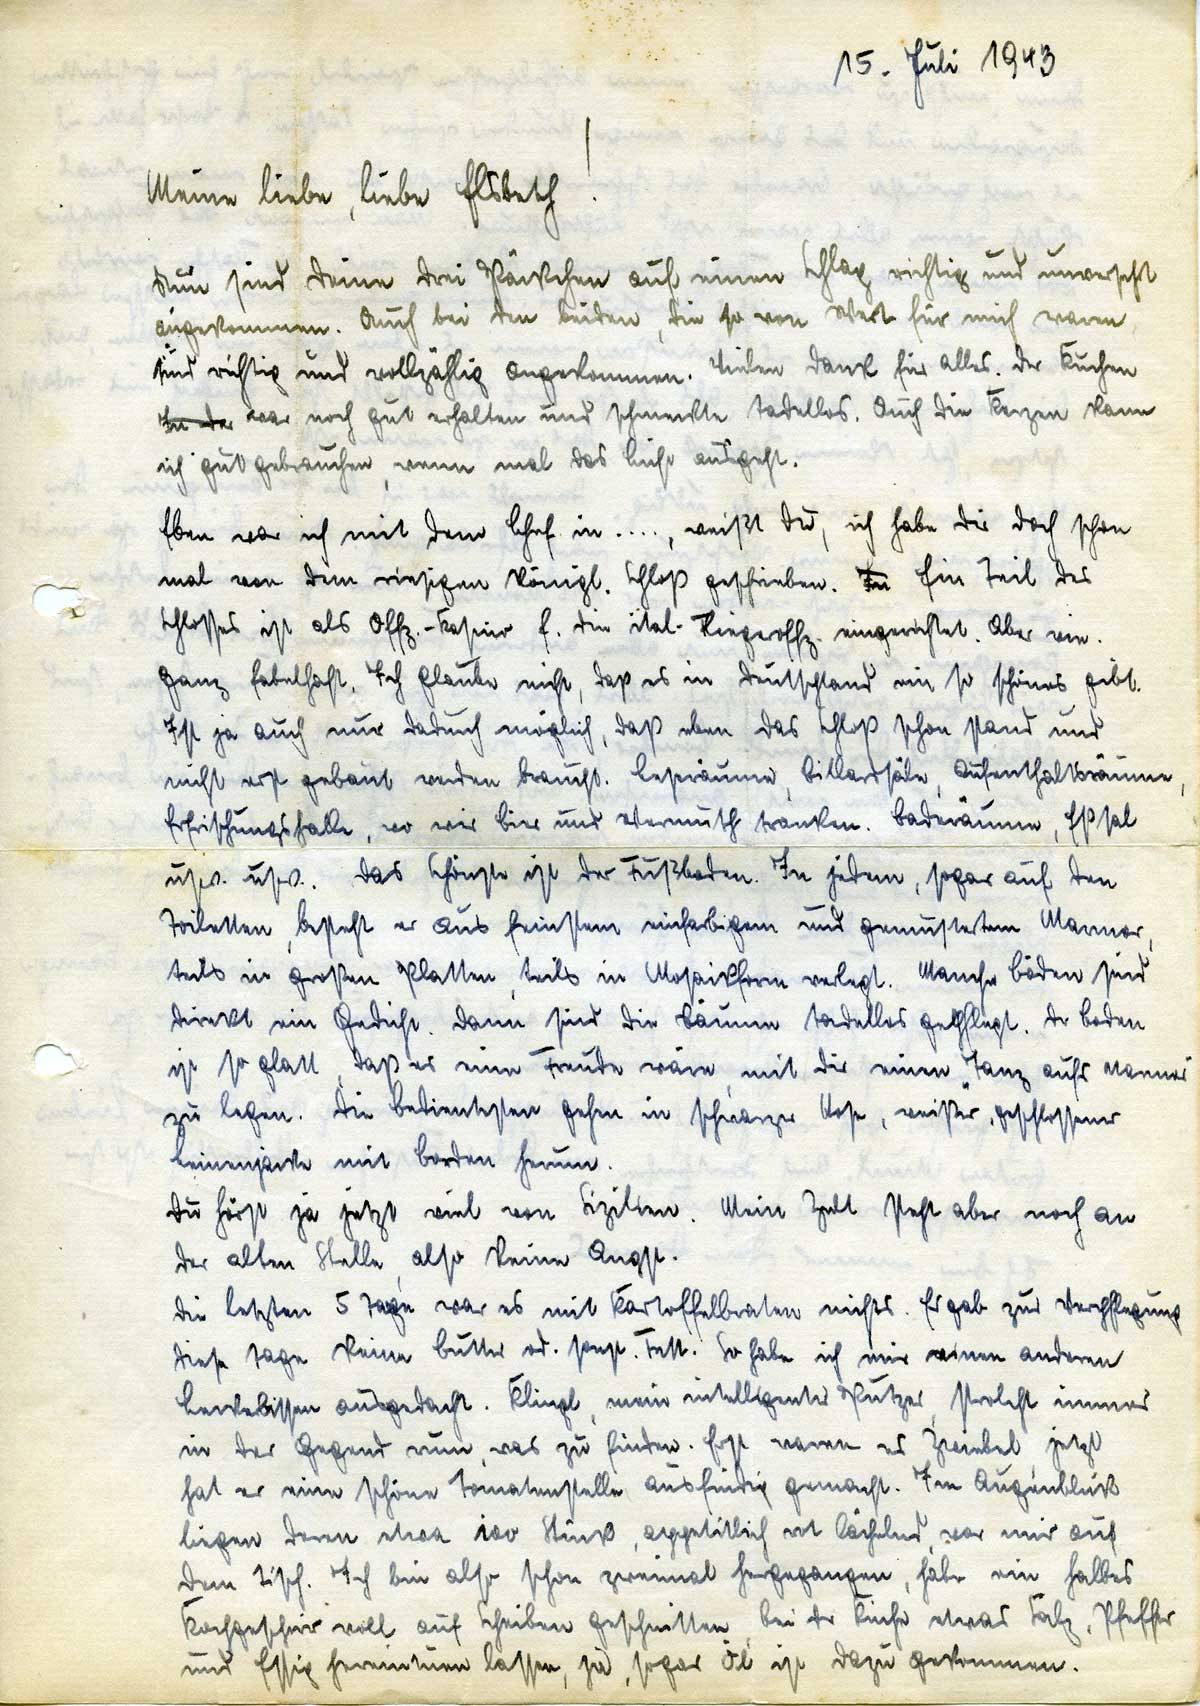 15. Juli 1943
Meine liebe, liebe Elsbeth!
Nun sind Deine drei Päckchen auf einen Schlag richtig und unversehrt
angekommen. Auch bei den beiden, die so von Wert für mich waren,
sind richtig und vollzählig angekommen. Vielen Dank für alles. Der Kuchen
In der war noch gut erhalten und schmeckte tadellos. Auch die Kerzen kann
ich gut gebrauchen, wenn mal das Licht ausgeht.
Eben war ich mit dem Chef in ...., weißt Du, ich habe Dir doch schon
mal von dem riesigen Königl. Schloß geschrieben. Ein Teil des
Schlosses ist als Offz.-Kasino f. die ital. Fliegeroffz. eingerichtet. Aber wie.
Ganz fabelhaft. Ich glaube nicht, daß es in Deutschland ein so schönes gibt.
Ist ja auch nur dadurch möglich, daß eben das Schloß schon stand und
nicht erst gebaut werden braucht. Leseräume, Billardsäle, Aufenthaltsräume,
Erfrischungshalle, wo wir Bier und Wermuth tranken. Baderäume, Eßsal
usw. usw. Das Schönste ist der Fußboden. In jedem, sogar auf den
Toiletten, besteht er aus feinstem einfarbigem und gemustertem Marmor,
teils in großen Platten, teils in Mosaikform verlegt. Manche Böden sind
direkt ein Gedicht. Dann sind die Räume tadellos gepflegt. Der Boden
ist so glatt, daß es eine Freude wäre, mit Dir einen Tanz aufs Marmor
zu legen. Die Bediensteten gehen in schwarzer Hose, weißer, geschlossener
Leinenjacke mit Borden herum.
Du hörst ja jetzt viel von Sizilien. Mein Zelt steht aber noch an
der alten Stelle, also keine Angst.
Die letzten 5 Tage war es mit Kartoffelbraten nichts. Es gab zur Verpflegung
diese Tage keine Butter od. sonst. Fett. So habe ich mir einen anderen
Leckerbissen ausgedacht. Klingl, mein intelligenter Putzer, strolcht immer
in der Gegend rum, was zu finden. Erst waren es Zwiebel, jetzt
hat er eine schöne Tomatenstelle ausfindig gemacht. Im Augenblick
liegen deren etwa 100 Stück, appetitlich rot lächelnd, vor mir auf
dem Tisch. Ich bin also schon zweimal hergegangen, habe ein halbes
Kochgeschirr voll auf Scheiben geschnitten, bei der Küche etwas Salz, Pfeffer
und Essig hereintuen lassen, ja, sogar Öl ist dazu gekommen.